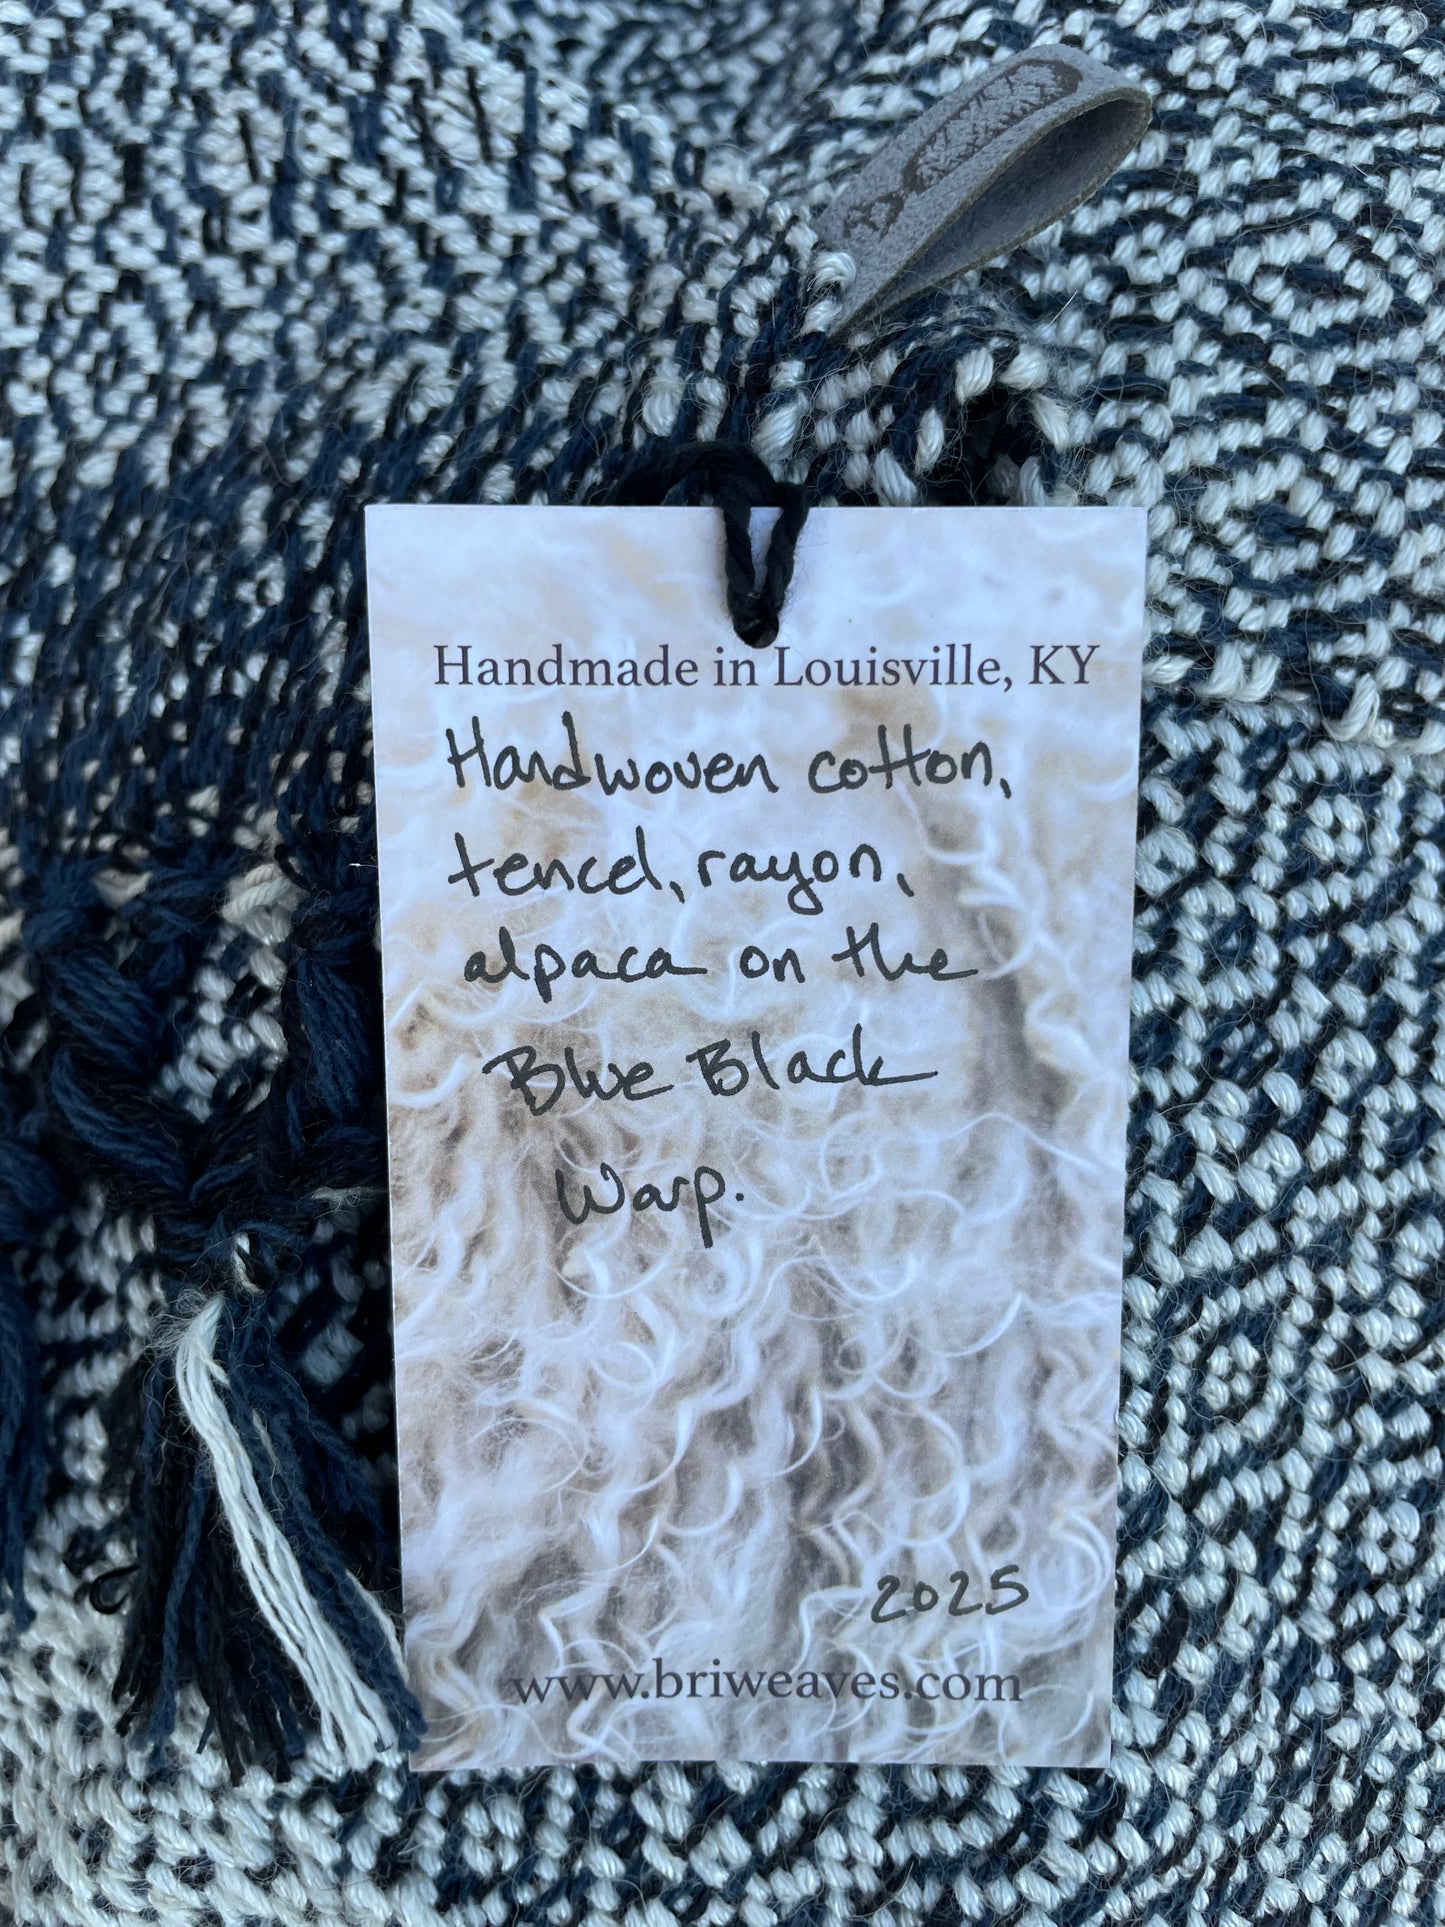 Handmade in Louisville, KY
Handwoven cotton,
tencel, rayon,
alpaca on the
Blue Black
Warp.
2025
www.briweaves.com